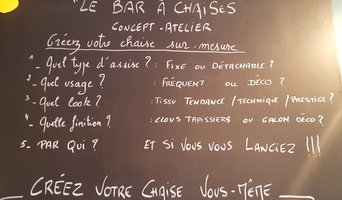 "LE BAR À CHAISES"
CONCEPT-ATELIER
Créez votre chaise sur-mesure
1_ Quel type d'assise ? : FIXE OU DÉTACHABLE ?
2_ Quel usage ? : FRÉQUENT OU DÉCO ?
3_ Quel look ? : TISSU TENDANCE / TECHNIQUE / PRESTIGE ?
4_ Quelle finition ? : CLOUS TAPISSIERS OU GALON DÉCO ?
5_ PAR QUI ? ET SI VOUS VOUS LANCIEZ !!!
CRÉEZ VOTRE CHAISE VOUS-MÊME